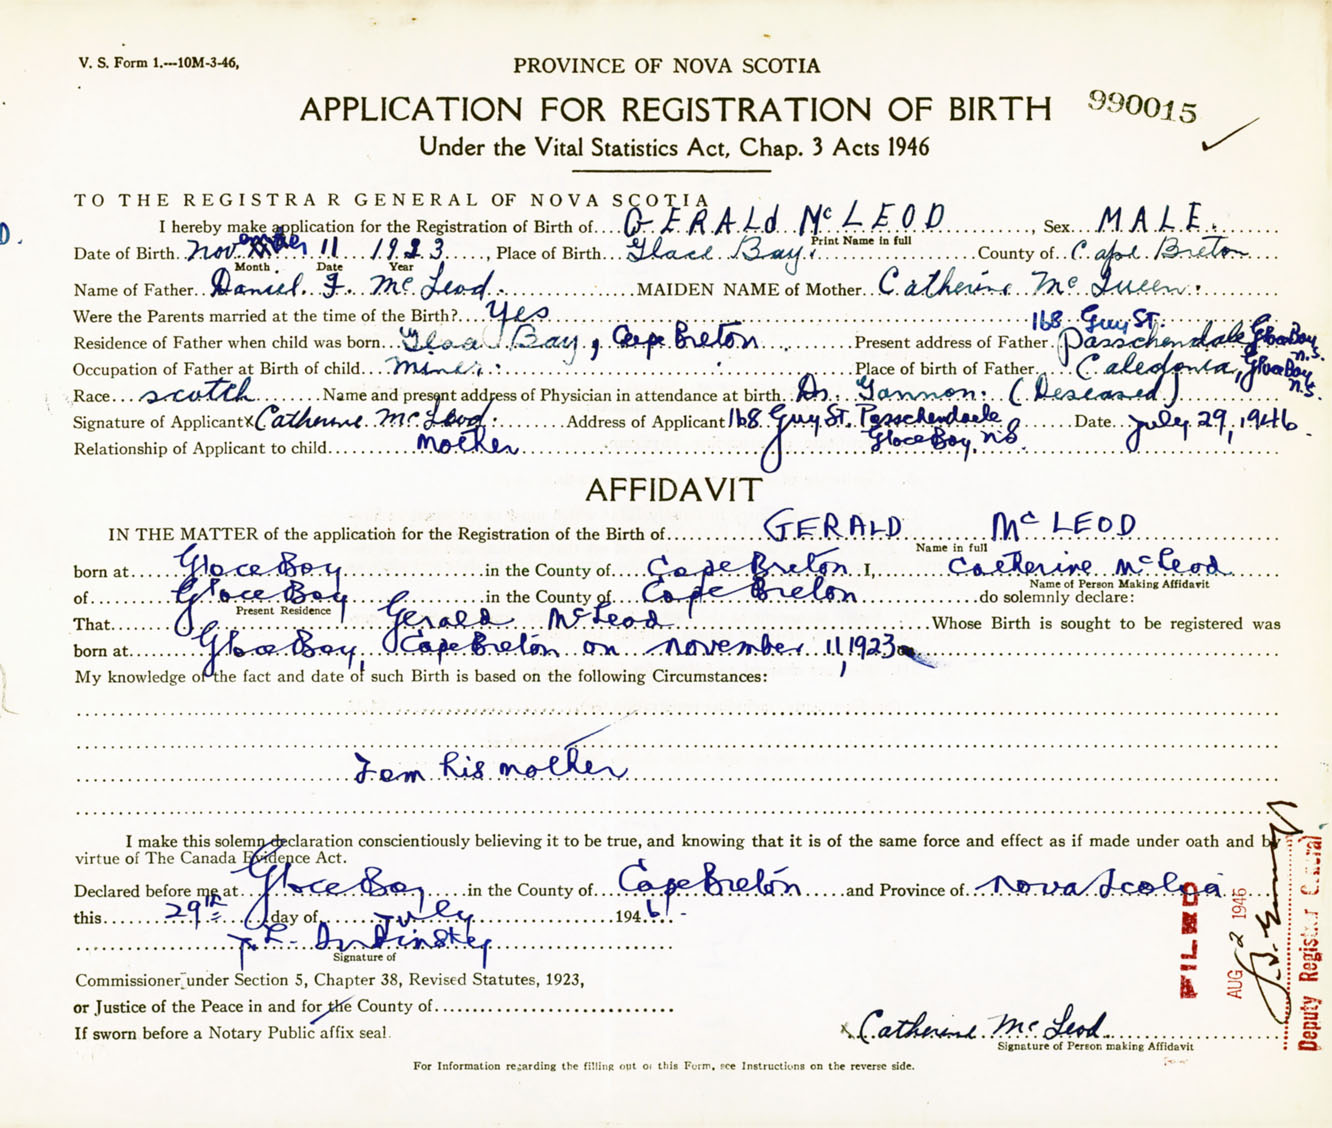 V. S. Form 1.---10M-3-46,
PROVINCE OF NOVA SCOTIA
APPLICATION FOR REGISTRATION OF BIRTH
990015
Under the Vital Statistics Act, Chap. 3 Acts 1946
TO THE REGISTRAR GENERAL OF NOVA SCOTIA
I hereby make application for the Registration of Birth of GERALD McLEOD, Sex MALE.
Print Name in full
D.
Date of Birth November 11 1923, Place of Birth Glace Bay. County of Cape Breton
Month Date Year
Name of Father Daniel F. McLeod. MAIDEN NAME of Mother Catherine McQueen.
Were the Parents married at the time of the Birth? Yes
168 Guy St.
Residence of Father when child was born Glace Bay, Cape Breton Present address of Father Passchendale Glace Bay N.S.
Occupation of Father at Birth of child Miner. Place of birth of Father Caledonia, Glace Bay N.S.
Race scotch Name and present address of Physician in attendance at birth Dr. Gannon. (Deseased)
Signature of Applicant x Catherine McLeod. Address of Applicant 168 Guy St. Passchendaele Date July 29, 1946.
Glace Bay, N.S.
Relationship of Applicant to child mother
AFFIDAVIT
IN THE MATTER of the application for the Registration of the Birth of GERALD McLEOD
Name in full
born at Glace Bay in the County of Cape Breton I, Catherine McLeod
Name of Person Making Affidavit
of Glace Bay in the County of Cape Breton do solemnly declare:
Present Residence
That Gerald McLeod Whose Birth is sought to be registered was
born at Glace Bay, Cape Breton on november 11, 1923
My knowledge of the fact and date of such Birth is based on the following Circumstances:
I am his mother
I make this solemn declaration conscientiously believing it to be true, and knowing that it is of the same force and effect as if made under oath and by
virtue of The Canada Evidence Act.
Declared before me at Glace Bay in the County of Cape Breton and Province of Nova Scotia
this 29th day of July 1946.
Signature of
Commissioner under Section 5, Chapter 38, Revised Statutes, 1923,
or Justice of the Peace in and for the County of
If sworn before a Notary Public affix seal.
x Catherine McLeod
Signature of Person making Affidavit
For Information regarding the filling out of this Form, see Instructions on the reverse side.
FILED
AUG 2 1946
Deputy Registrar General